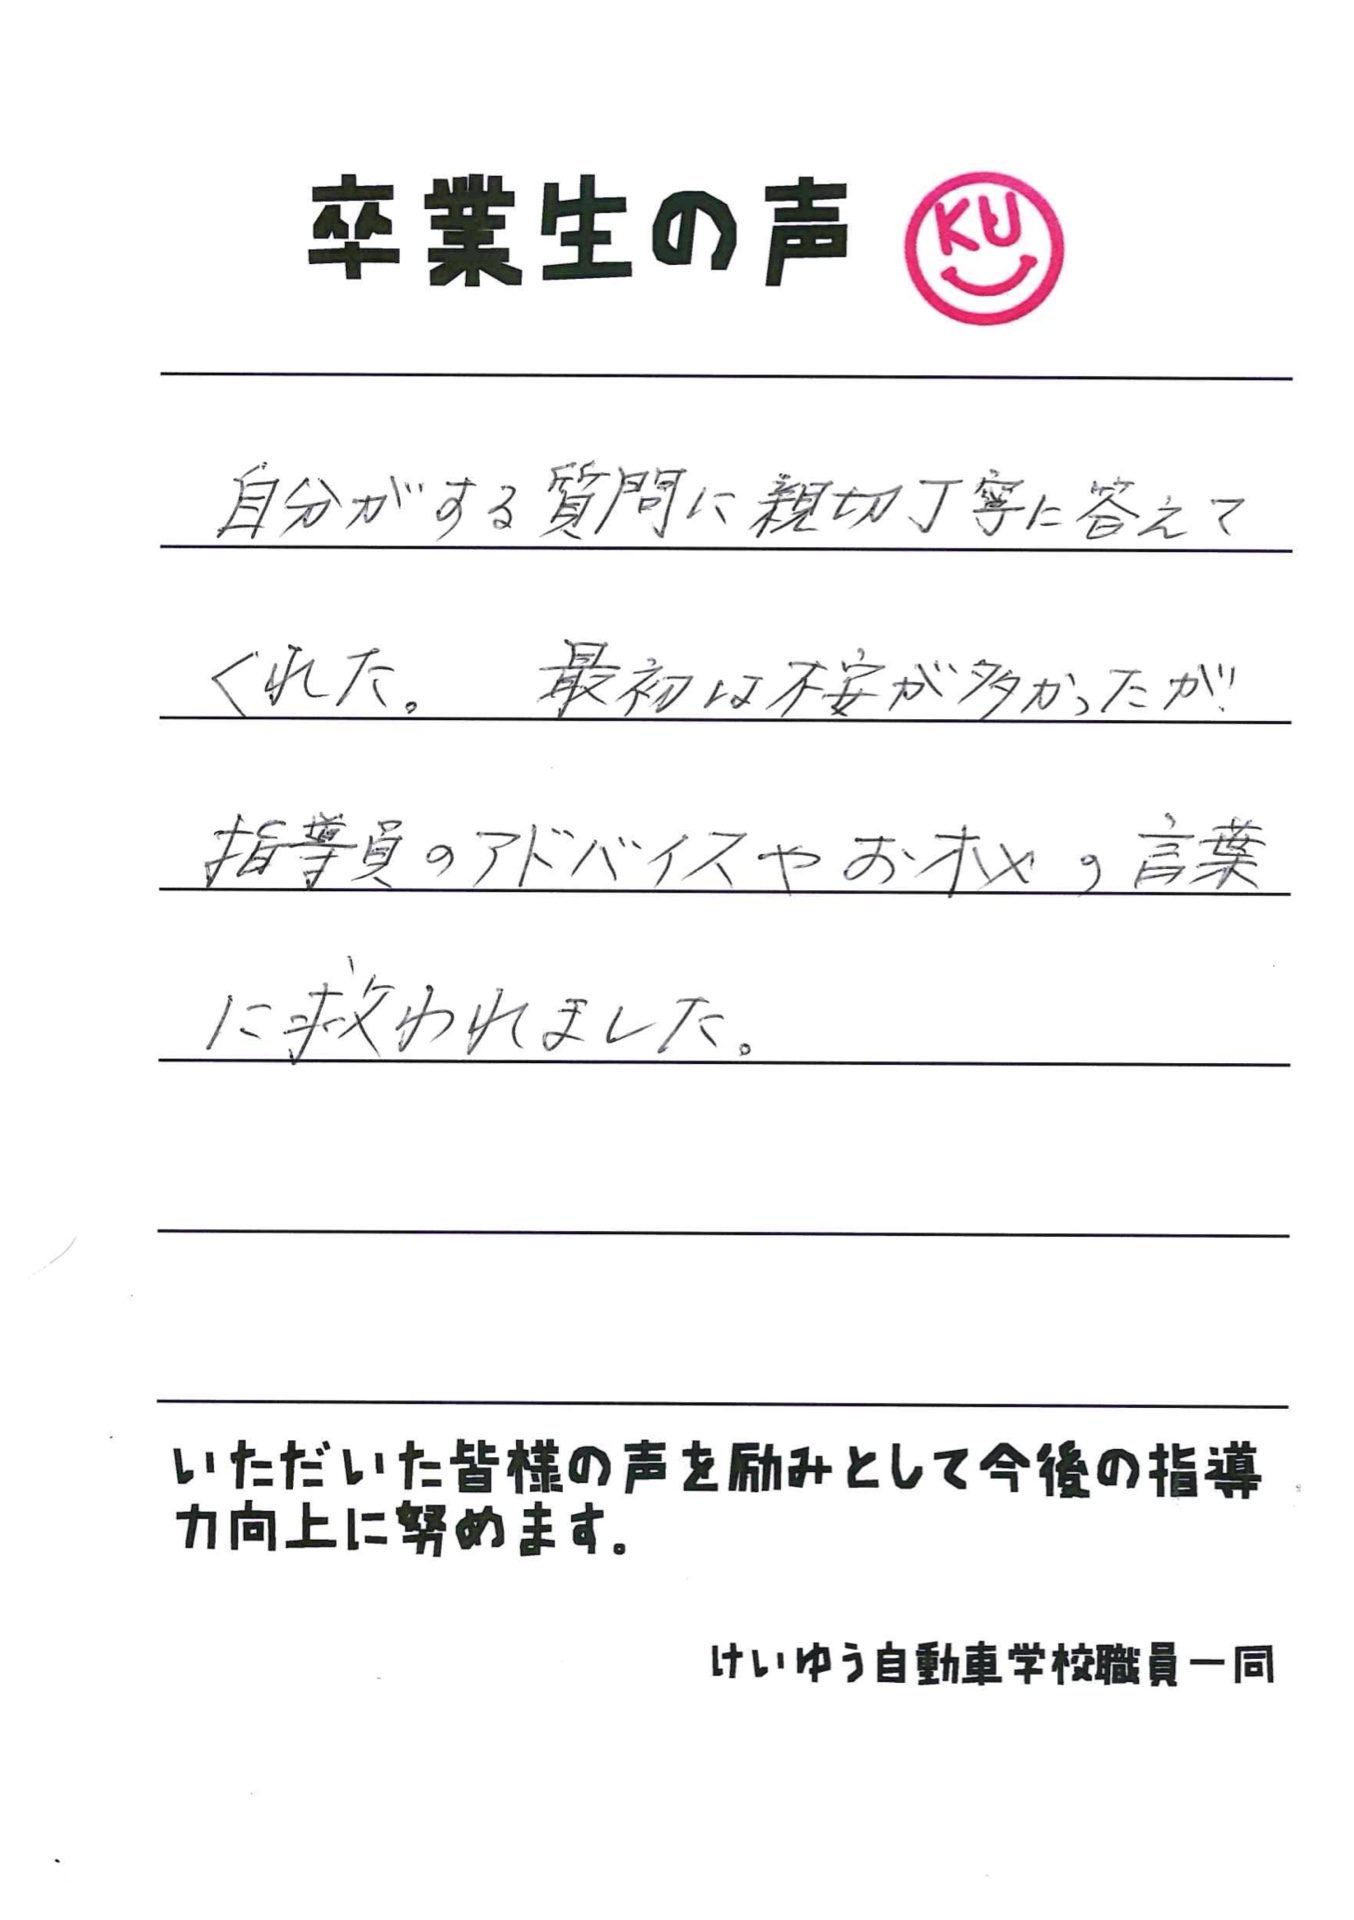 卒業生の声
KU
自分がする質問に親切丁寧に答えて
くれた。 最初は不安が多かったが
指導員のアドバイスやお の言葉
に救われました。
いただいた皆様の声を励みとして今後の指導
力向上に努めます。
けいゆう自動車学校職員一同